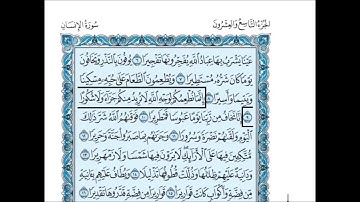 الجزء التاسع والعشرون
سورة الإنسان
عينا يشرب بها عباد الله يفجرونها تفجيرا ٦ يوفون بالنذر ويخافون
يوما كان شره مستطيرا ٧ ويطعمون الطعام على حبه مسكينا
ويتيما وأسيرا ٨ إنما نطعمكم لوجه الله لا نريد منكم جزاء ولا شكورا
٩ إنا نخاف من ربنا يوما عبوسا قمطريرا ١٠ فوقىهم الله شر ذلك
اليوم ولقىهم نضرة وسرورا ١١ وجزىهم بما صبروا جنة وحريرا ١٢
متكـين فيها على الأرائك لا يرون فيها شمسا ولا زمهريرا ١٣
ودانية عليهم ظلالها وذللت قطوفها تذليلا ١٤ ويطاف عليهم بـانية
من فضة وأكواب كانت قواريرا ١٥ قواريرا من فضة قدروها تقديرا ١٦